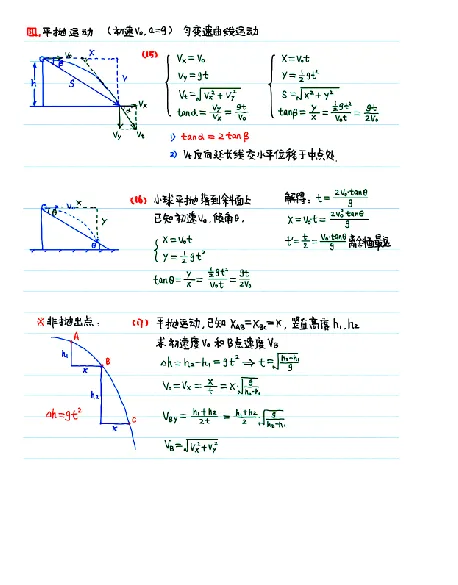 四.平抛运动 (初速V₀, a=g) 匀变速曲线运动
(15)
Vₓ=V₀
Vy=gt
Vt=√(Vₓ²+Vy²)
tanα=Vy/Vₓ=gt/V₀
X=V₀t
Y=½gt²
S=√(x²+y²)
tanβ=y/x=½gt²/V₀t=gt/2V₀
1) tanα=2tanβ
2) Vt反向延长线交水平位移于中点处.
(16) 小球平抛落到斜面上
已知初速V₀, 倾角θ.
X=V₀t
Y=½gt²
tanθ=y/x=½gt²/V₀t=gt/2V₀
解得: t=2V₀·tanθ/g
X=V₀t=2V₀²·tanθ/g
t'=t/2=V₀·tanθ/g 离斜面最远
※非抛出点:
(17) 平抛运动, 已知 X_AB=X_BC=X, 竖直高度 h₁.h₂
求初速度V₀ 和B点速度V_B
Δh=h₂-h₁=gt² ⇒ t=√((h₂-h₁)/g)
V₀=Vₓ=x/t=x·√(g/(h₂-h₁))
V_By=(h₁+h₂)/2t=(h₁+h₂)/2·√(g/(h₂-h₁))
V_B=√(Vₓ²+Vy²)
Δh=gt²
A
h₁
x
B
h₂
x
C